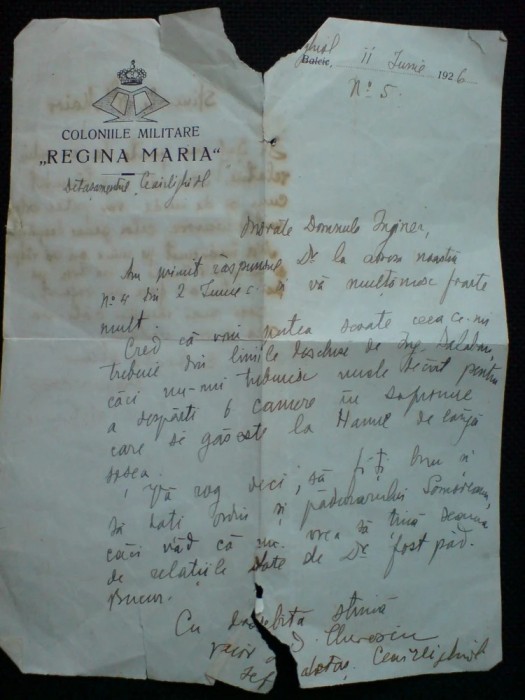 Balcic, 11 Iunie 1926
No 5.
COLONIILE MILITARE
„REGINA MARIA“
Detașamentul Ceairlighiol
Onorate Domnule Inginer,
Am primit răspunsul Dv. la adresa noastră
No 4 din 2 Iunie c. și vă mulțumesc foarte
mult.
Cred că voiu putea scoate ceea ce-mi
trebuie din liniile deschise de Ing.
căci nu-mi trebuiesc nuele decât pentru
a despărți 6 camere în
care se găsește la Hanul de lângă
șosea.
Vă rog deci, să fiți bun și
să dați ordin și pădurarului
căci văd că nu vrea să țină seama
de relațiile date de Dl fost păd.
Bucur.
Cu deosebită stimă